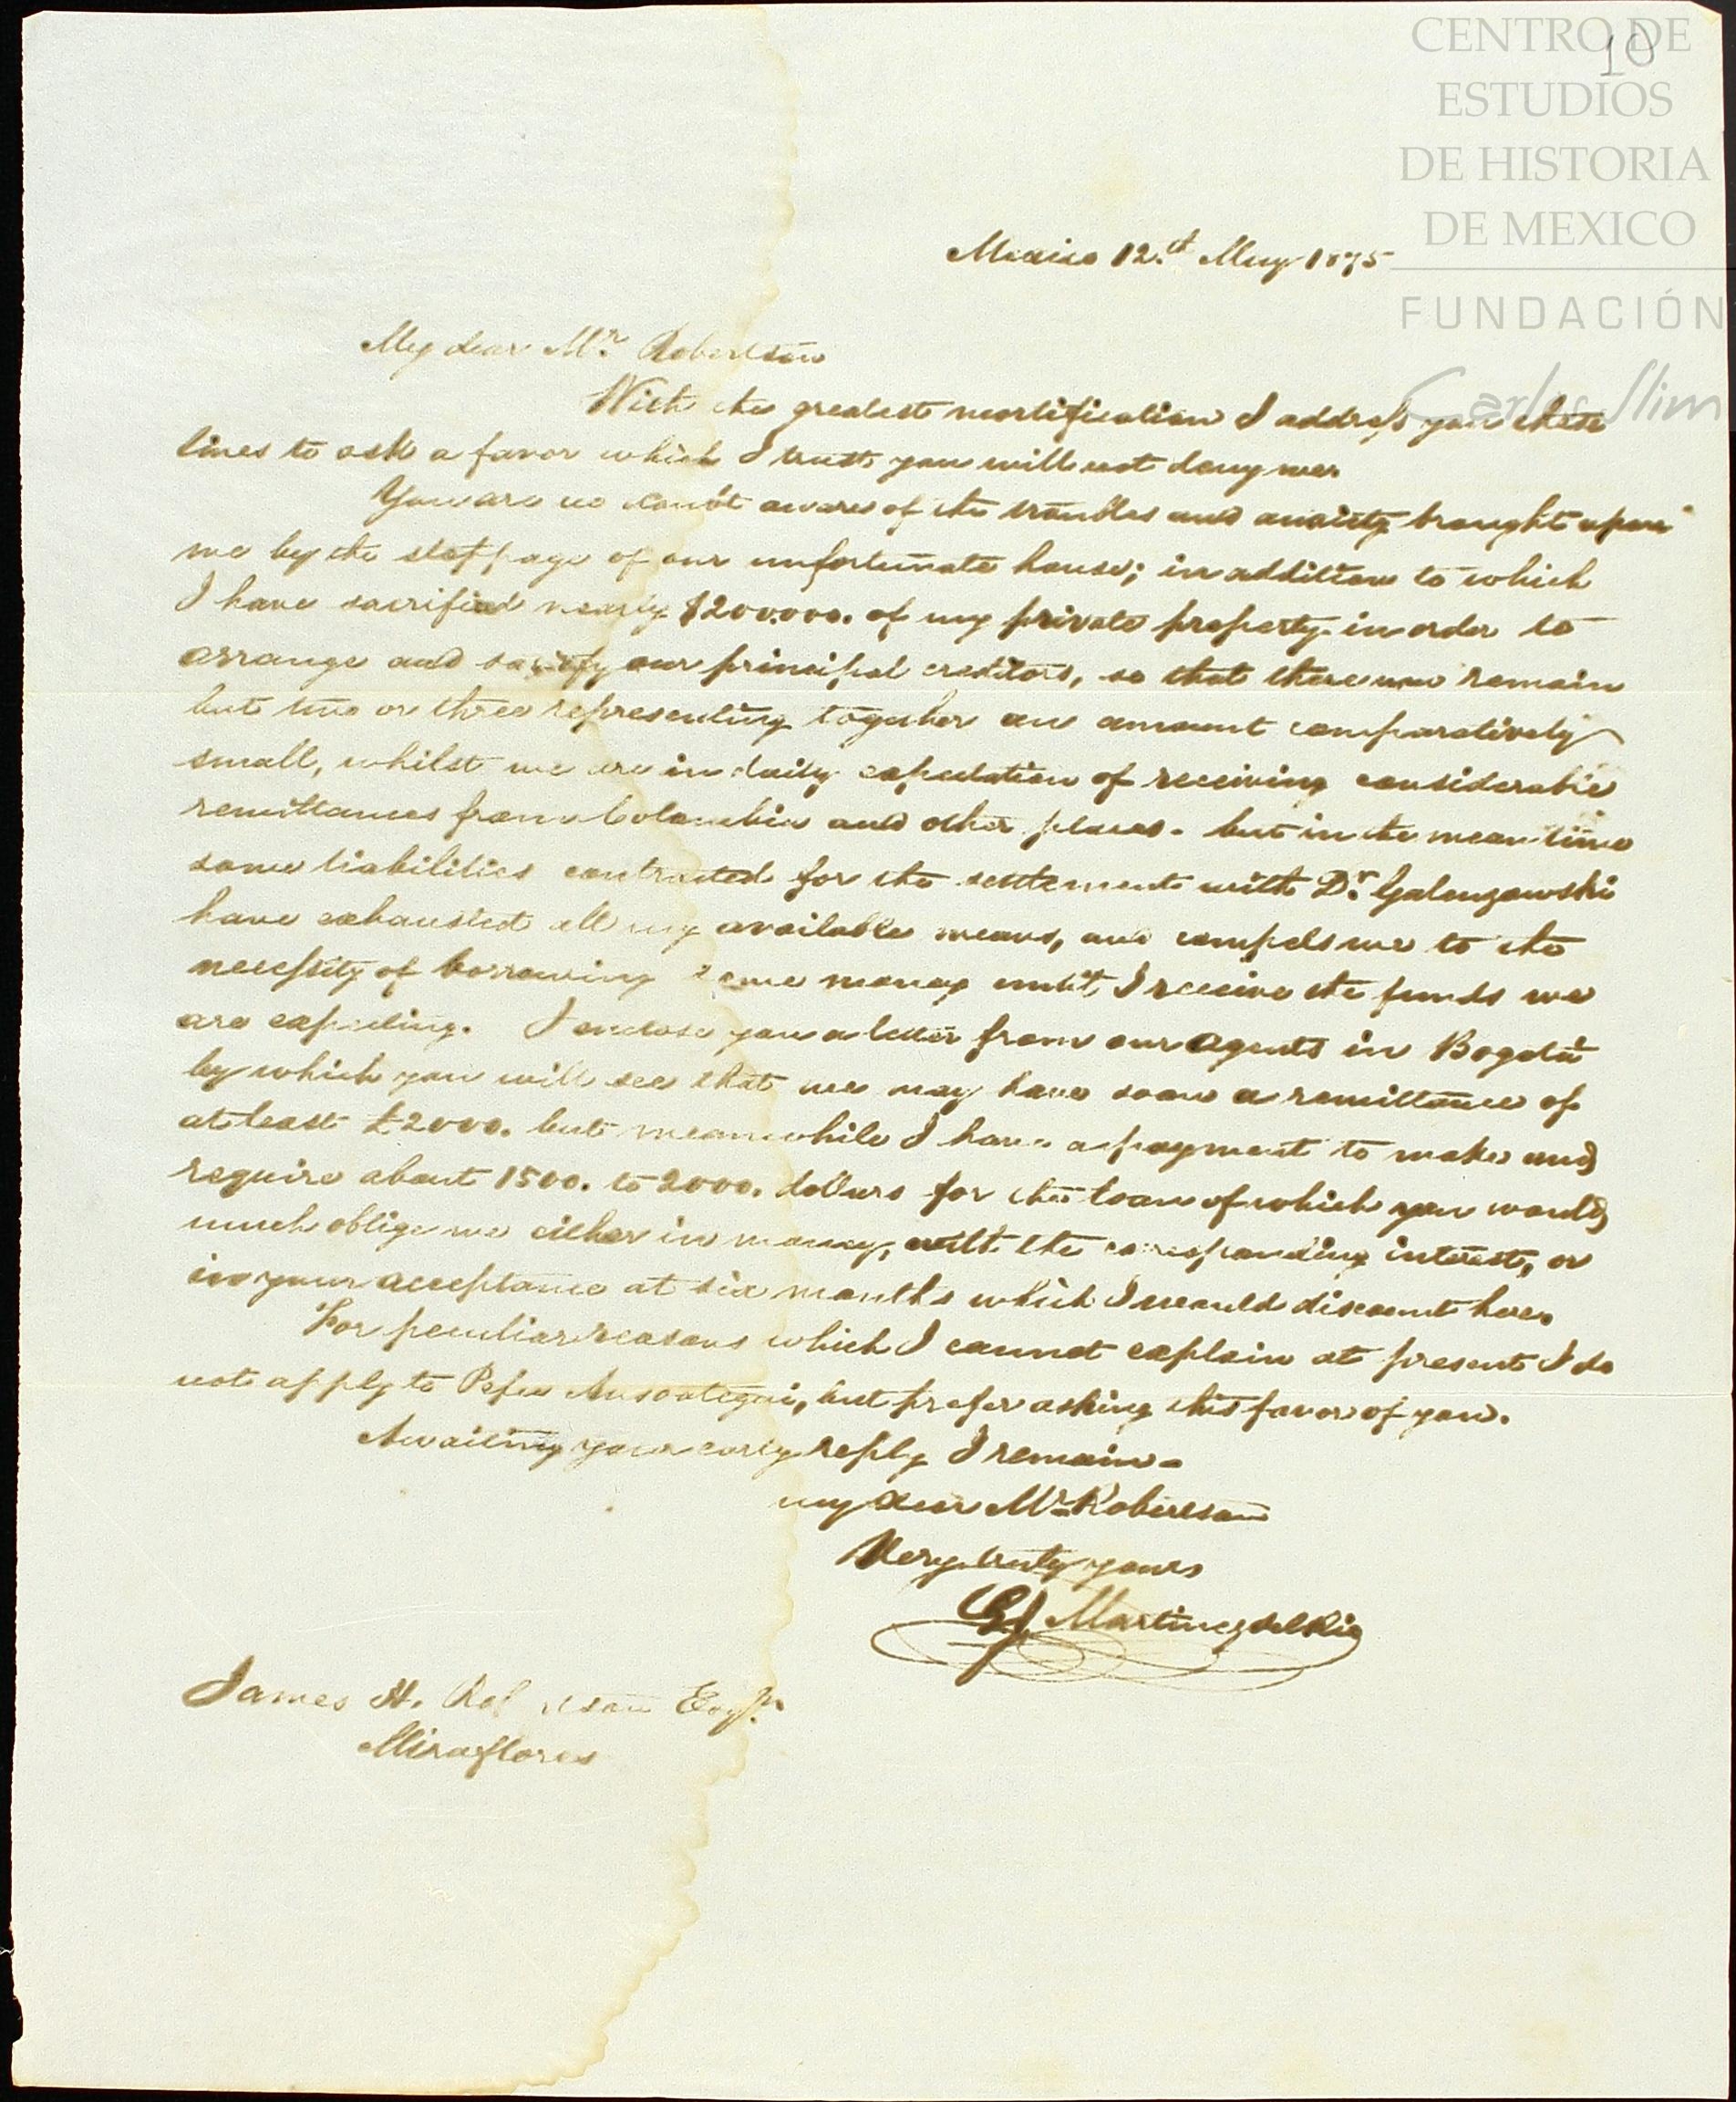 CENTRO DE
ESTUDIOS
DE HISTORIA
DE MEXICO
FUNDACIÓN
Carlos Slim
10
Mexico 12.th May 1875
My dear Mr. Robertson
With the greatest mortification I address you these
lines to ask a favor which I trust you will not deny me.
You are no doubt aware of the troubles and anxiety brought upon
me by the stoppage of our unfortunate house; in addition to which
I have sacrified nearly $200.000. of my private property in order to
arrange and satisfy our principal creditors, so that there now remain
but two or three representing together an amount comparatively
small, whilst we are in daily expectation of receiving considerable
remittances from Colombia and other places. but in the mean time
some liabilities contracted for the settlement with Dr. Galenzowski
have exhausted all my available means, and compels me to the
necessity of borrowing some money until I receive the funds we
are expecting. I enclose you a letter from our agents in Bogotá
by which you will see that we may have soon a remittance of
at least £2000. but meanwhile I have a payment to make and
require about 1500. to 2000. dollars for the loan of which you would
much oblige me either in money, with the corresponding interest, or
in your acceptance at six months which I would discount here.
For peculiar reasons which I cannot explain at present I do
not apply to Pepe Ansoategui, but prefer asking this favor of you.
Awaiting your early reply I remain
my dear Mr Robertson
Very truly yours
Martinez del Rio
James H. Robertson Esqr.
Miraflores